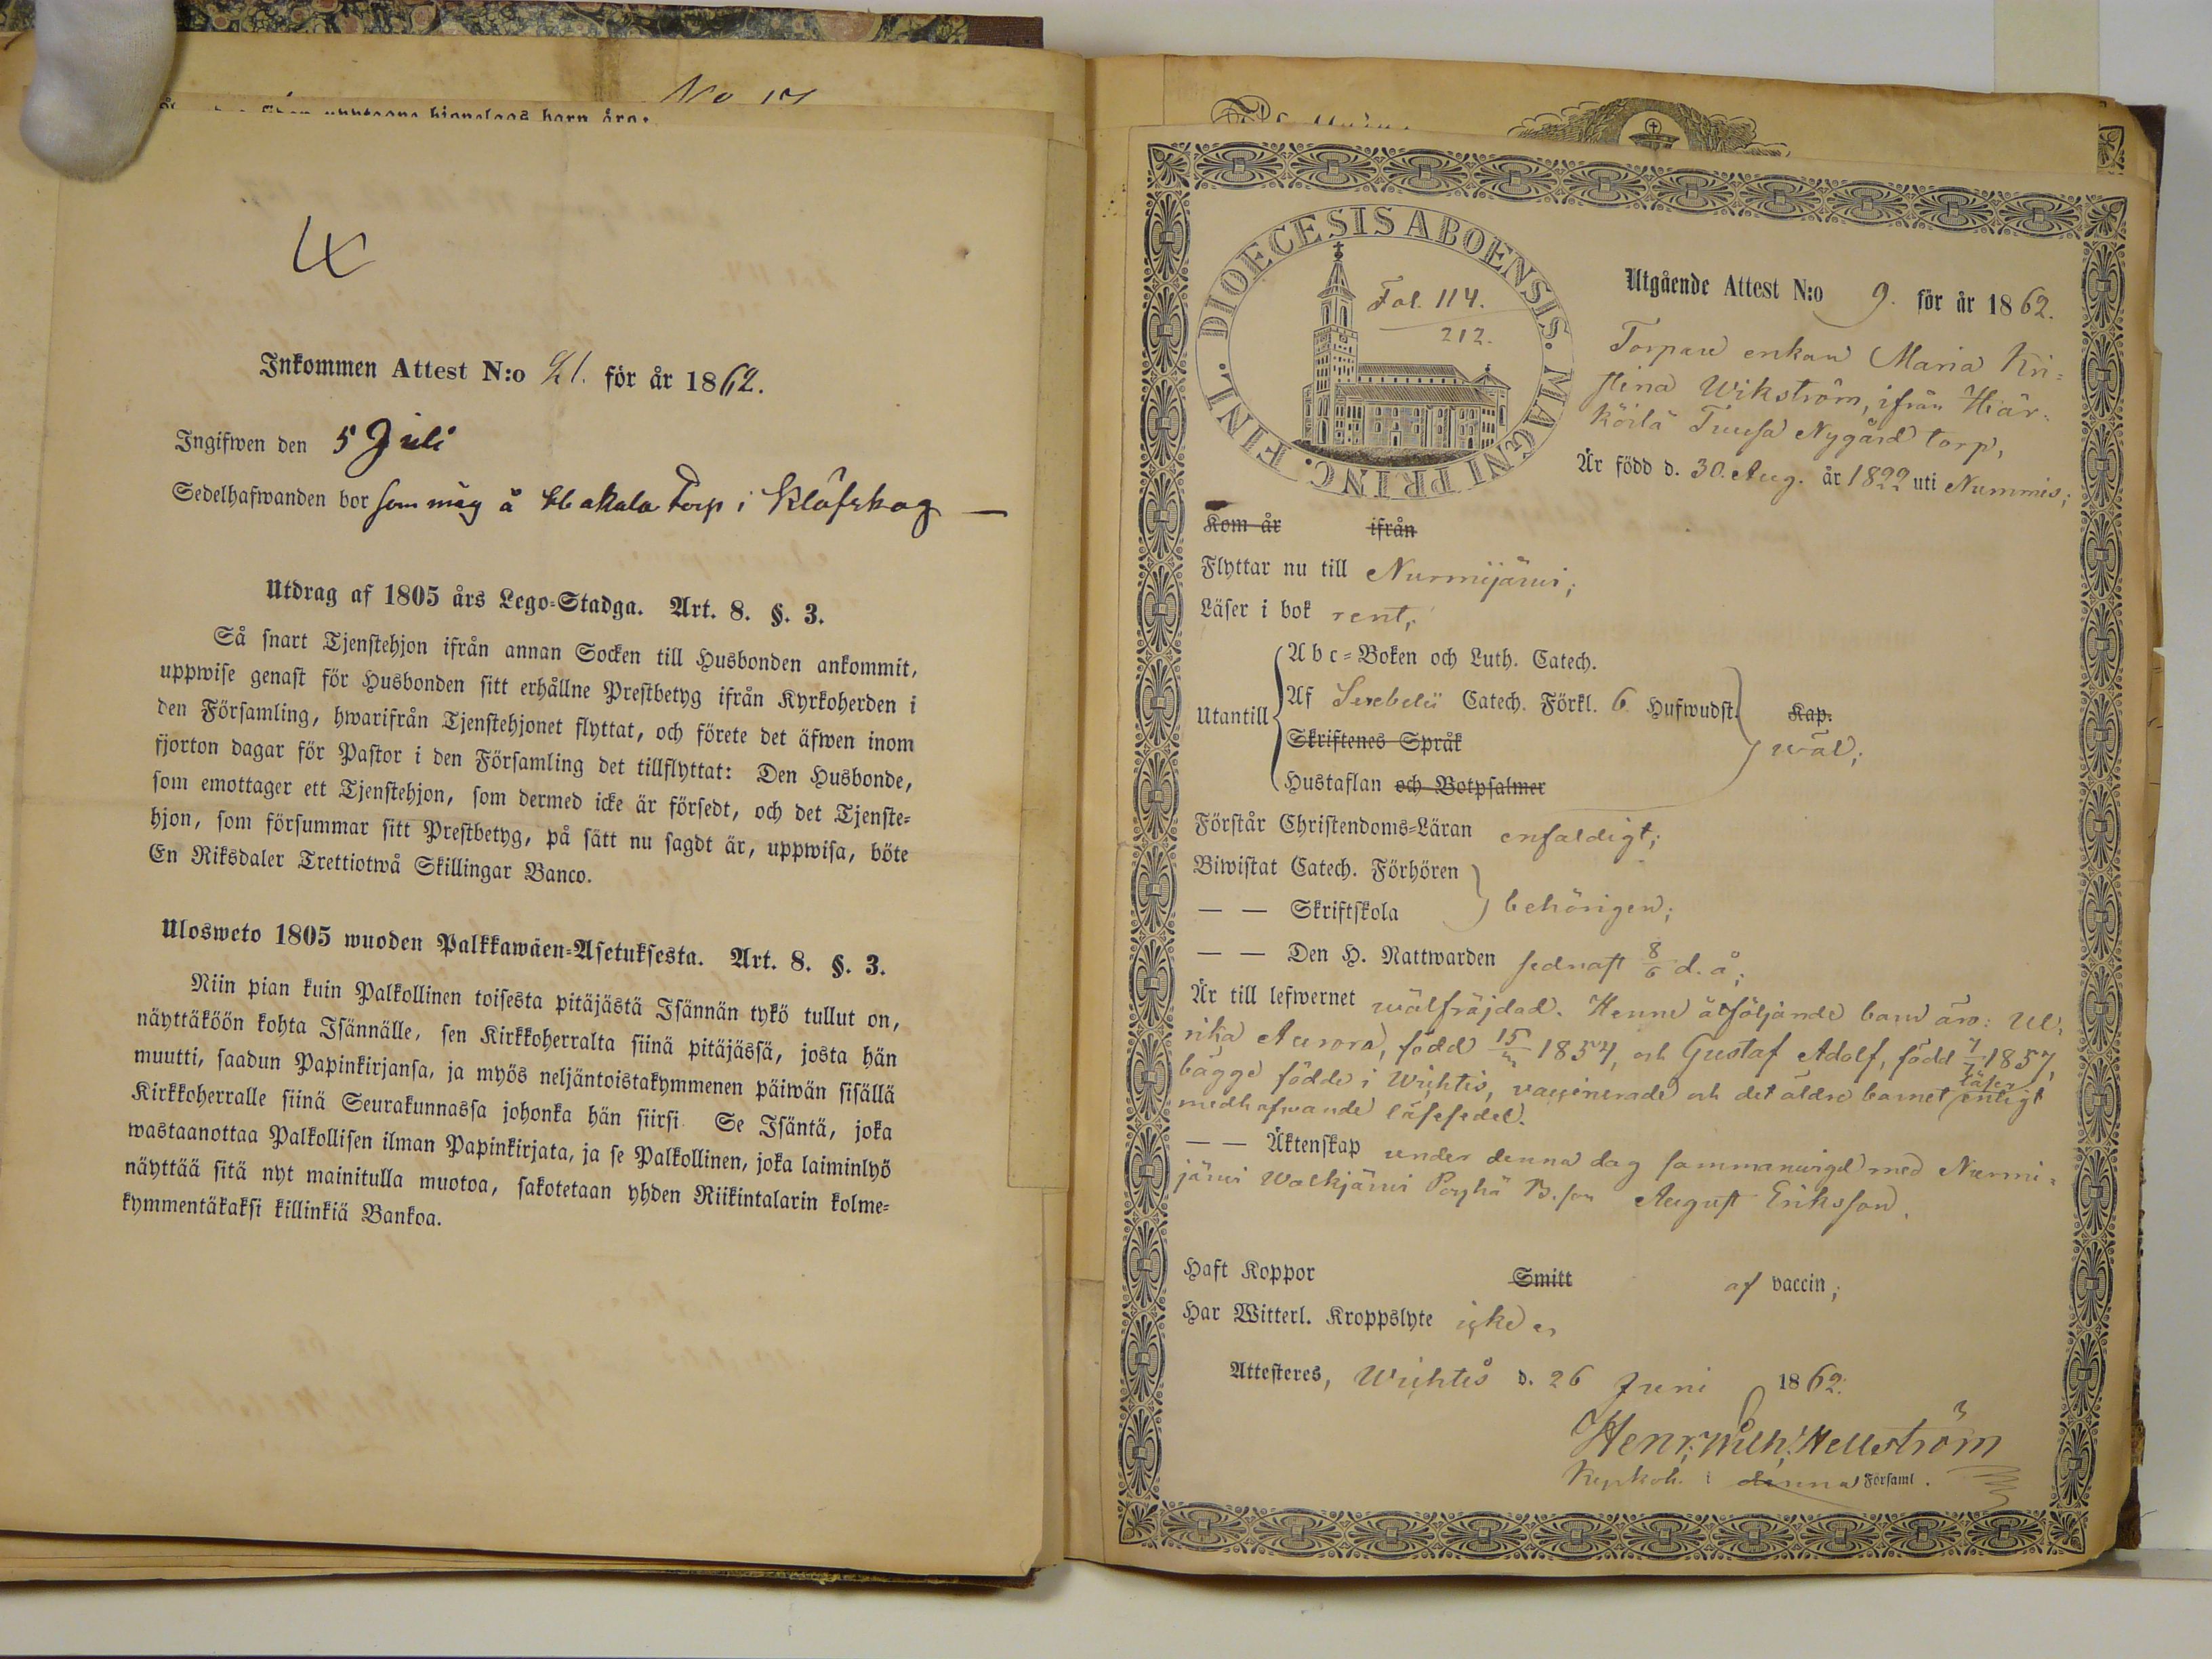 No 17
hjonelags barn äro:
Inkommen Attest N:o 21. för år 1862.
Ingifwen den 5 Juli
Sedelhafwanden bor som måg å Torp i Klöfskog —
Utdrag af 1805 års Lego-Stadga. Art. 8. §. 3.
Så snart Tjenstehjon ifrån annan Socken till Husbonden ankommit,
uppwise genast för Husbonden sitt erhållne Prestbetyg ifrån Kyrkoherden i
den Församling, hwarifrån Tjenstehjonet flyttat, och förete det äfwen inom
fjorton dagar för Pastor i den Församling det tillflyttat: Den Husbonde,
som emottager ett Tjenstehjon, som dermed icke är försedt, och det Tjenste-
hjon, som försummar sitt Prestbetyg, på sätt nu sagdt är, uppwisa, böte
En Riksdaler Trettiotwå Skillingar Banco.
Ulosweto 1805 wuoden Palkkawäen-Asetuksesta. Art. 8. §. 3.
Niin pian kuin Palkollinen toisesta pitäjästä Isännän tykö tullut on,
näyttäköön kohta Isännälle, sen Kirkkoherralta siinä pitäjässä, josta hän
muutti, saadun Papinkirjansa, ja myös neljäntoistakymmenen päiwän sisällä
Kirkkoherralle siinä Seurakunnassa johonka hän siirsi. Se Isäntä, joka
wastaanottaa Palkollisen ilman Papinkirjata, ja se Palkollinen, joka laiminlyö
näyttää sitä nyt mainitulla muotoa, sakotetaan yhden Riikintalarin kolme-
kymmentäkaksi killinkiä Bankoa.
DIOECESIS ABOENSIS. MAGNI PRINC. FINL.
Fol. 114.
212.
Utgående Attest N:o 9. för år 1862.
Torpare enkan Maria Kri-
stina Wikström, ifrån Häär-
köilä Nygård torp,
Är född d. 30. Aug. år 1822 uti Nummis;
Kom år ifrån
Flyttar nu till Nurmijärvi;
Läser i bok rent;
Utantill
Abc-Boken och Luth. Catech.
Af Serebelii Catech. Förkl. 6 Hufwudst. Kap.
Skriftenes Språk
wäl;
Hustaflan och Botpsalmer
Förstår Christendoms-Läran enfaldigt;
Biwistat Catech. Förhören
— — Skriftskola behörigen;
— — Den H. Nattwarden sednast 8/6 d. å;
Är till lefwernet wälfräjdad. Henne åtföljande barn äro: Ul-
rika Aurora, född 15/ 1854, och Gustaf Adolf, född 1857,
bägge födde i Wichtis, vaccinerade och det äldre barnet läser enligt
medhafwande läsesedel.
— — Äktenskap under denna dag sammanwigd med Nurmi-
järwi Walkjärwi Pöyhä B. son August Eriksson.
Haft Koppor Smitt af vaccin;
Har Witterl. Kroppslyte icke
Attesteres, Wichtis d. 26 Juni 1862.
Henr. Wilh. Hellström
Kyrkoh. i denna Församl.